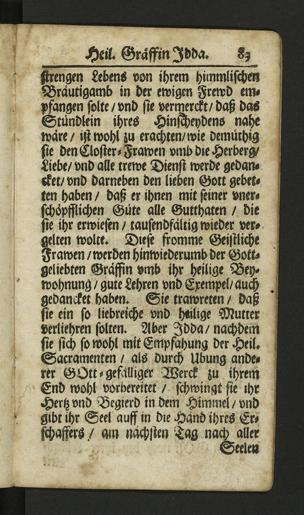 Heil. Gräffin Idda. 83
strengen Lebens von ihrem himmlischen
Bräutigamb in der ewigen Frewd em-
pfangen solte / vnd sie vermerckt / daß das
Stündlein ihres Hinscheydens nahe
wäre / ist wohl zu erachten / wie demüthig
sie den Closter-Frawen vmb die Herberg /
Liebe / vnd alle trewe Dienst werde gedan-
cket / vnd darneben den lieben Gott gebet-
ten haben / daß er ihnen mit seiner vner-
schöpfflichen Güte alle Gutthaten / die
sie ihr erwiesen / tausendfältig wieder ver-
gelten wolte. Diese fromme Geistliche
Frawen / werden hinwiederumb der Gott-
geliebten Gräffin vmb ihr heilige Bey-
wohnung / gute Lehren vnd Exempel / auch
gedancket haben. Sie trawreten / daß
sie ein so liebreiche vnd heilige Mutter
verliehren solten. Aber Idda / nachdem
sie sich so wohl mit Empfahung der Heil.
Sacramenten / als durch Ubung ande-
rer GOtt-gefälliger Werck zu ihrem
End wohl vorbereitet / schwingt sie ihr
Hertz vnd Begierd in dem Himmel / vnd
gibt ihr Seel auff in die Händ ihres Er-
schaffers / am nächsten Tag nach aller
Seelen